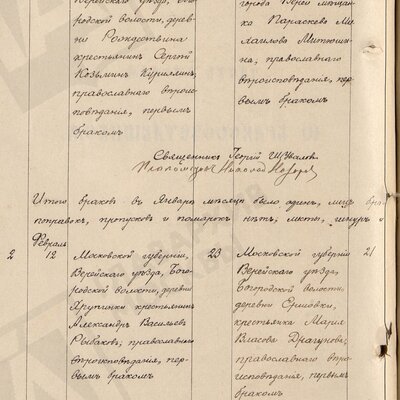 Верейского уѣзда, Бого-
родской волости, дерев-
ни Рождествина
крестьянинъ Сергѣй
Козьминъ Кириллинъ,
православнаго вѣрои-
сповѣданія, первымъ
бракомъ
города Вереи мѣщан-
ка Параскева Ми-
хайлова Митюши-
на, православнаго
вѣроисповѣданія, пер-
вымъ бракомъ
Священникъ Георгій
Псаломщикъ Николай
Итого браковъ въ Январѣ мѣсяцѣ было одинъ, лицъ
поправокъ, пропусковъ и помарокъ нѣтъ, листы, шнуръ и
Февраль
2 12 Московской губерніи,
Верейскаго уѣзда, Бого-
родской волости, деревни
Крупинки крестьянинъ
Александръ Васильевъ
Рыбаковъ, православнаго
вѣроисповѣданія, пер-
вымъ бракомъ
23 Московской губерніи
Верейскаго уѣзда,
Богородской волости,
деревни Ермовки,
крестьянка Марія
Власова Драгунова,
православнаго вѣро-
исповѣданія, первымъ
бракомъ
21